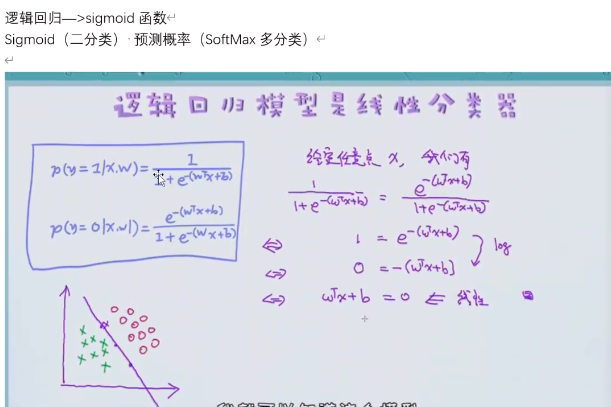 逻辑回归—>sigmoid 函数
Sigmoid（二分类）· 预测概率（SoftMax 多分类）
逻辑回归模型是线性分类器
p(y=1|x,w) = 1 / (1 + e^-(wᵀx+b))
p(y=0|x,w|) = e^-(wᵀx+b) / (1 + e^-(wᵀx+b))
给定任意点 x, 令们有
1 / (1+e^-(wᵀx+b)) = e^-(wᵀx+b) / (1+e^-(wᵀx+b))
⇔ 1 = e^-(wᵀx+b) log
⇔ 0 = -(wᵀx+b]
⇔ wᵀx+b = 0 ⇐ 线性